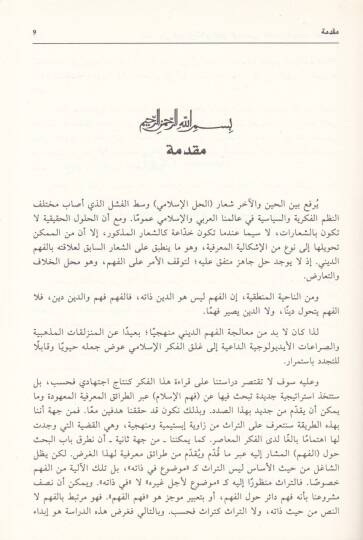 مقدمة
9
بسم الله الرحمن الرحيم
مقدمة
يُرفع بين الحين والآخر شعار (الحل الإسلامي) وسط الفشل الذي أصاب مختلف
النظم الفكرية والسياسية في عالمنا العربي والإسلامي عمومًا. ومع أن الحلول الحقيقية لا
تكون بالشعارات، لا سيما عندما تكون خدّاعة كالشعار المذكور، إلا أن من الممكن
تحويلها إلى نوع من الإشكالية المعرفية، وهو ما ينطبق على الشعار السابق لعلاقته بالفهم
الديني. إذ لا يوجد حل جاهز متفق عليه؛ لتوقف الأمر على الفهم، وهو محل الخلاف
والتعارض.
ومن الناحية المنطقية، إن الفهم ليس هو الدين ذاته، فالفهم فهم والدين دين، فلا
الفهم يتحول دينًا، ولا الدين يصير فهمًا.
لذا كان لا بد من معالجة الفهم الديني منهجيًا؛ بعيدًا عن المنزلقات المذهبية
والصراعات الأيديولوجية الداعية إلى غلق الفكر الإسلامي عوض جعله حيويًا وقابلًا
للتجدد باستمرار.
وعليه سوف لا تقتصر دراستنا على قراءة هذا الفكر كنتاج اجتهادي فحسب، بل
ستتخذ استراتيجية جديدة تبحث فيها عن (فهم الإسلام) عبر الطرائق المعرفية المعهودة وما
يمكن أن يقدّم من جديد بهذا الصدد. وبذلك نكون قد حققنا هدفين معًا. فمن جهة أننا
بهذه الطريقة سنتعرف على التراث من زاوية إبستيمية ومنهجية، وهي القضية التي وجدت
لها اهتمامًا بالغًا لدى الفكر المعاصر. كما يمكننا ـ من جهة ثانية ـ أن نطرق باب البحث
حول (الفهم) المشار إليه عبر ما قُدّم ويُقدّم من طرائق معرفية لهذا الغرض. لكن يظل
الشاغل من حيث الأساس ليس التراث كـ «موضوع في ذاته»، بل تلك الآلية من الفهم
خصوصًا. فالتراث منظورًا إليه كـ «موضوع لأجل غيره» لا «في ذاته». ويمكن أن نصف
مشروعنا بأنه فهم دائر حول الفهم، أو بتعبير موجز هو «فهم الفهم». فهو مرتبط بالفهم لا
النص من حيث ذاته، ولا التراث كتراث فحسب. وبالتالي فغرض هذه الدراسة هو إبداء